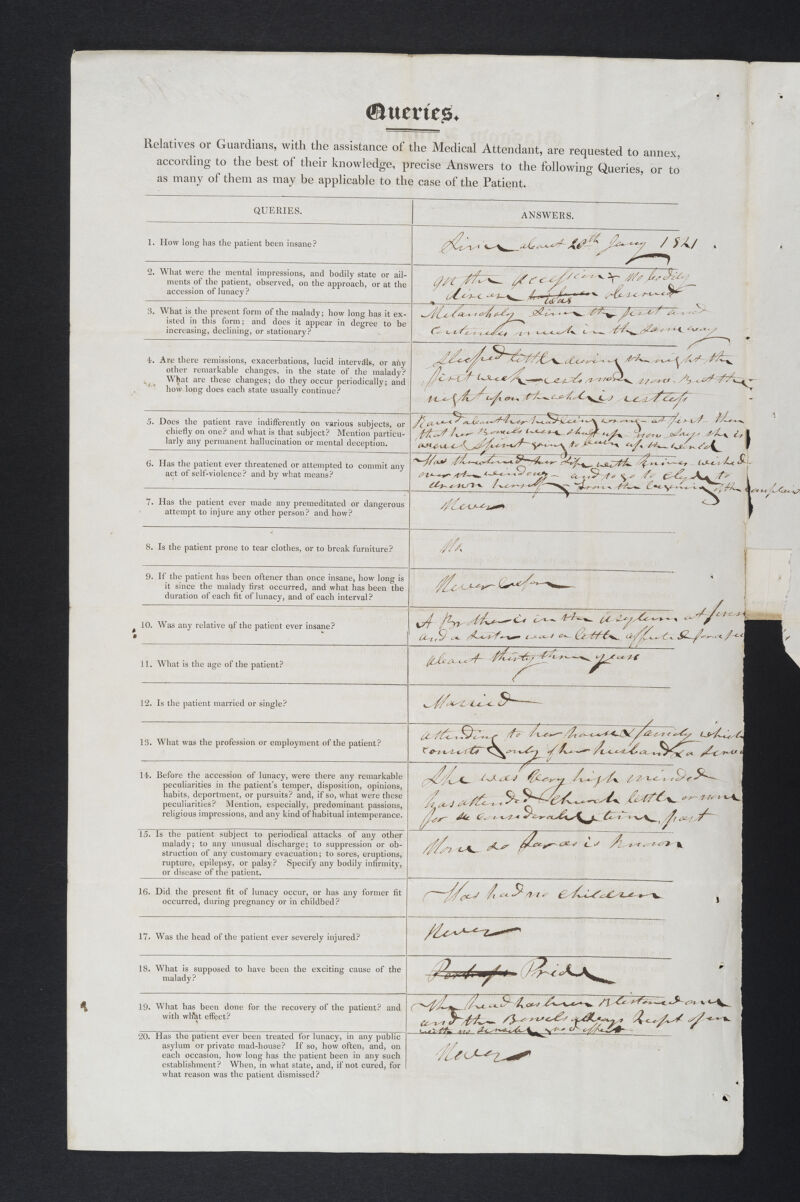 Queries.
Relatives or Guardians, with the assistance of the Medical Attendant, are requested to annex,
according to the best of their knowledge, precise Answers to the following Queries, or to
as many of them as may be applicable to the case of the Patient.
QUERIES.
ANSWERS.
1. How long has the patient been insane?
Since about 20th Jany 1821.
2. What were the mental impressions, and bodily state or ail-
ments of the patient, observed, on the approach, or at the
accession of lunacy?
on the accession no bodily
disease was observed
3. What is the present form of the malady; how long has it ex-
isted in this form; and does it appear in degree to be
increasing, declining, or stationary?
Melancholy Since the first and
Continues much in the same way
4. Are there remissions, exacerbations, lucid intervals, or any
other remarkable changes, in the state of the malady?
What are these changes; do they occur periodically; and
how long does each state usually continue?
Sleeped little during the night the
first week rests more now. But the
night upon the whole is restless
5. Does the patient rave indifferently on various subjects, or
chiefly on one? and what is that subject? Mention particu-
larly any permanent hallucination or mental deception.
Raved about her head being wrong at first then
that her Bowels were shut up now says she is
spirit going to up the world
6. Has the patient ever threatened or attempted to commit any
act of self-violence? and by what means?
Has threatened her life with knives wished
over the windows and to go to Clyde to
drown herself from the beginning of the complaint
7. Has the patient ever made any premeditated or dangerous
attempt to injure any other person? and how?
Never
8. Is the patient prone to tear clothes, or to break furniture?
No.
9. If the patient has been oftener than once insane, how long is
it since the malady first occurred, and what has been the
duration of each fit of lunacy, and of each interval?
Never before
10. Was any relative of the patient ever insane?
A Brother is in the asylum at
and a sister was a little affected for a
11. What is the age of the patient?
about thirty three years
12. Is the patient married or single?
Married
13. What was the profession or employment of the patient?
attending to her house & family which
consists only of her husband & a
14. Before the accession of lunacy, were there any remarkable
peculiarities in the patient's temper, disposition, opinions,
habits, deportment, or pursuits? and, if so, what were these
peculiarities? Mention, especially, predominant passions,
religious impressions, and any kind of habitual intemperance.
She was very high minded
has attended Church little or none
for a considerable time past
15. Is the patient subject to periodical attacks of any other
malady; to any unusual discharge; to suppression or ob-
struction of any customary evacuation; to sores, eruptions,
rupture, epilepsy, or palsy? Specify any bodily infirmity,
or disease of the patient.
None so far as is known
16. Did the present fit of lunacy occur, or has any former fit
occurred, during pregnancy or in childbed?
Has had no children
17. Was the head of the patient ever severely injured?
Never
18. What is supposed to have been the exciting cause of the
malady?
Perhaps Pride
19. What has been done for the recovery of the patient? and
with what effect?
The head has been Blistered once
and the Bowels always keept open
with no sensible good effect
20. Has the patient ever been treated for lunacy, in any public
asylum or private mad-house? If so, how often, and, on
each occasion, how long has the patient been in any such
establishment? When, in what state, and, if not cured, for
what reason was the patient dismissed?
Never